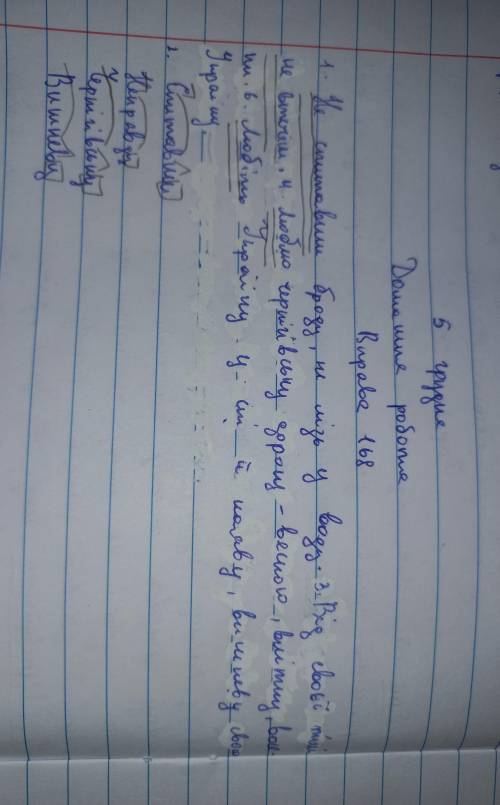 5 грудня
Домашня робота
Вправа 168
1. Не спитавши броду, не лізь у воду. 3. Від своєї тіні
не втечеш. 4. Люблю чернігівську дорогу - весною, влітку, вос.
ни. 6. Любіть Україну у сні й наяву, вишневу свою
Україну
2. Спитавши
Неправду
Чернігівську
Вишневу